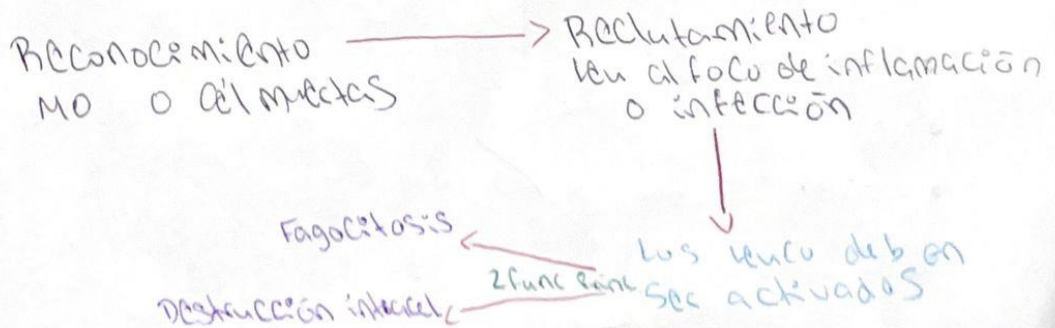 Reconocimiento
MO o cél muertas
Reclutamiento
leu al foco de inflamación
o infección
Los leuco deben
ser activados
2 func princ
Fagocitosis
Destrucción intracel